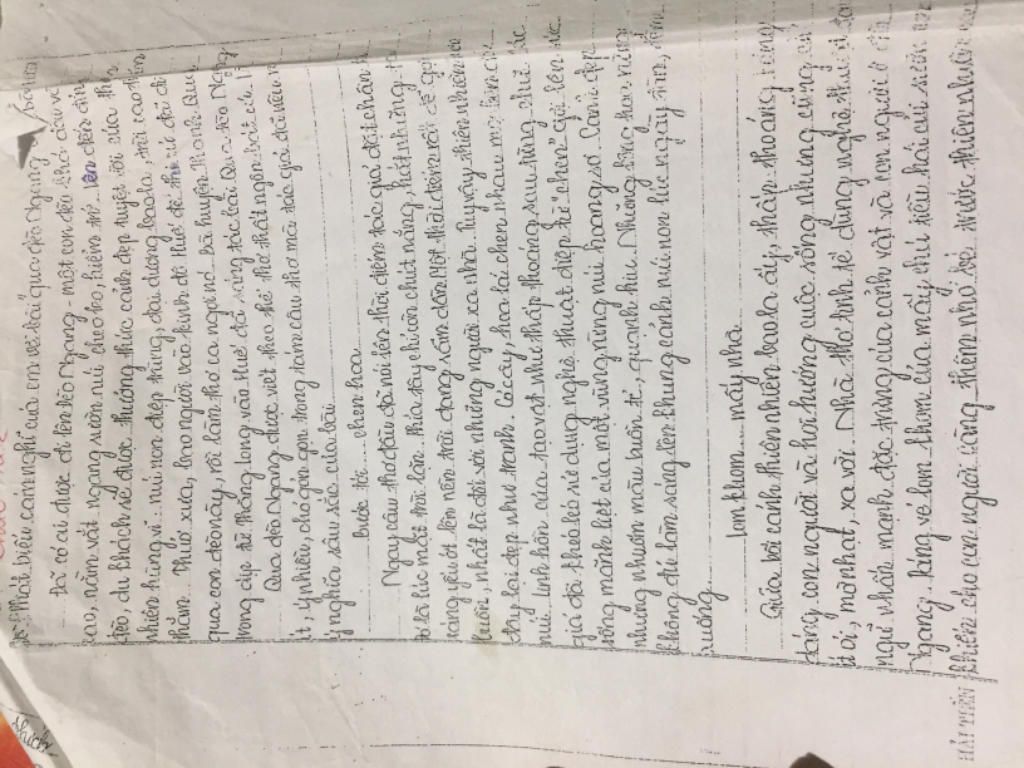 Phát biểu cảm nghĩ của em về bài qua đèo Ngang
Đã có ai được đi lên đèo Ngang - một con đèo khá dài và
cao, nằm vắt ngang sườn núi cheo leo, hiểm trở. Lên đến đỉnh
đèo, du khách sẽ được thưởng thức cảnh đẹp tuyệt vời của thiên
nhiên hùng vĩ: núi non điệp trùng, đại dương bao la, trời cao thăm
thẳm. Thuở xưa, bao người vào kinh đô Huế để thi cử đã đi
qua con đèo này, rồi làm thơ ca ngợi nó. Bà huyện Thanh Quan
trong dịp từ Thăng Long vào Huế đã sáng tác bài Qua đèo Ngang
Qua đèo Ngang được viết theo thể thơ thất ngôn bát cú. Lời
ít, ý nhiều, chỉ gói gọn trong tám câu thơ mà tác giả đã nêu
ý nghĩa sâu sắc của bài
Bước tới ... chen hoa
Ngay câu thơ đầu đã nói lên thời điểm tác giả đặt chân
đó là lúc mặt trời lặn. Phía tây chỉ còn chút nắng, hắt những
sáng yếu ớt lên nền trời đang sẫm dần. Một thời điểm rất dễ gợi
buồn, nhất là đối với những người xa nhà. Tuy vậy thiên nhiên
đây lại đẹp như tranh. Cỏ cây, hoa lá chen nhau mọc
núi. Linh hồn của tạo vật như thấp thoáng sau từng chữ. Tác
giả đã khéo léo sử dụng nghệ thuật điệp từ "chen" gợi lên sức
sống mãnh liệt của một vùng rừng núi hoang sơ. Cảnh đẹp
nhưng nhuốm màu buồn tẻ, quạnh hiu. Những bông hoa rừng
không đủ làm sáng lên khung cảnh núi non lúc ngày tàn, đêm
xuống.
Lom khom ... mấy nhà
Giữa bối cảnh thiên nhiên bao la ấy, thấp thoáng bóng
dáng con người và hơi hướng cuộc sống nhưng cũng
ít ỏi, mờ nhạt, xa vời. Nhà thơ tinh tế dùng nghệ thuật đảo
ngữ nhấn mạnh đặc trưng của cảnh vật và con người ở đèo
Ngang. Dáng vẻ lom khom của mấy chú tiều hái củi sườn non
khiến cho con người càng thêm nhỏ bé trước thiên nhiên
HẢI TIẾN